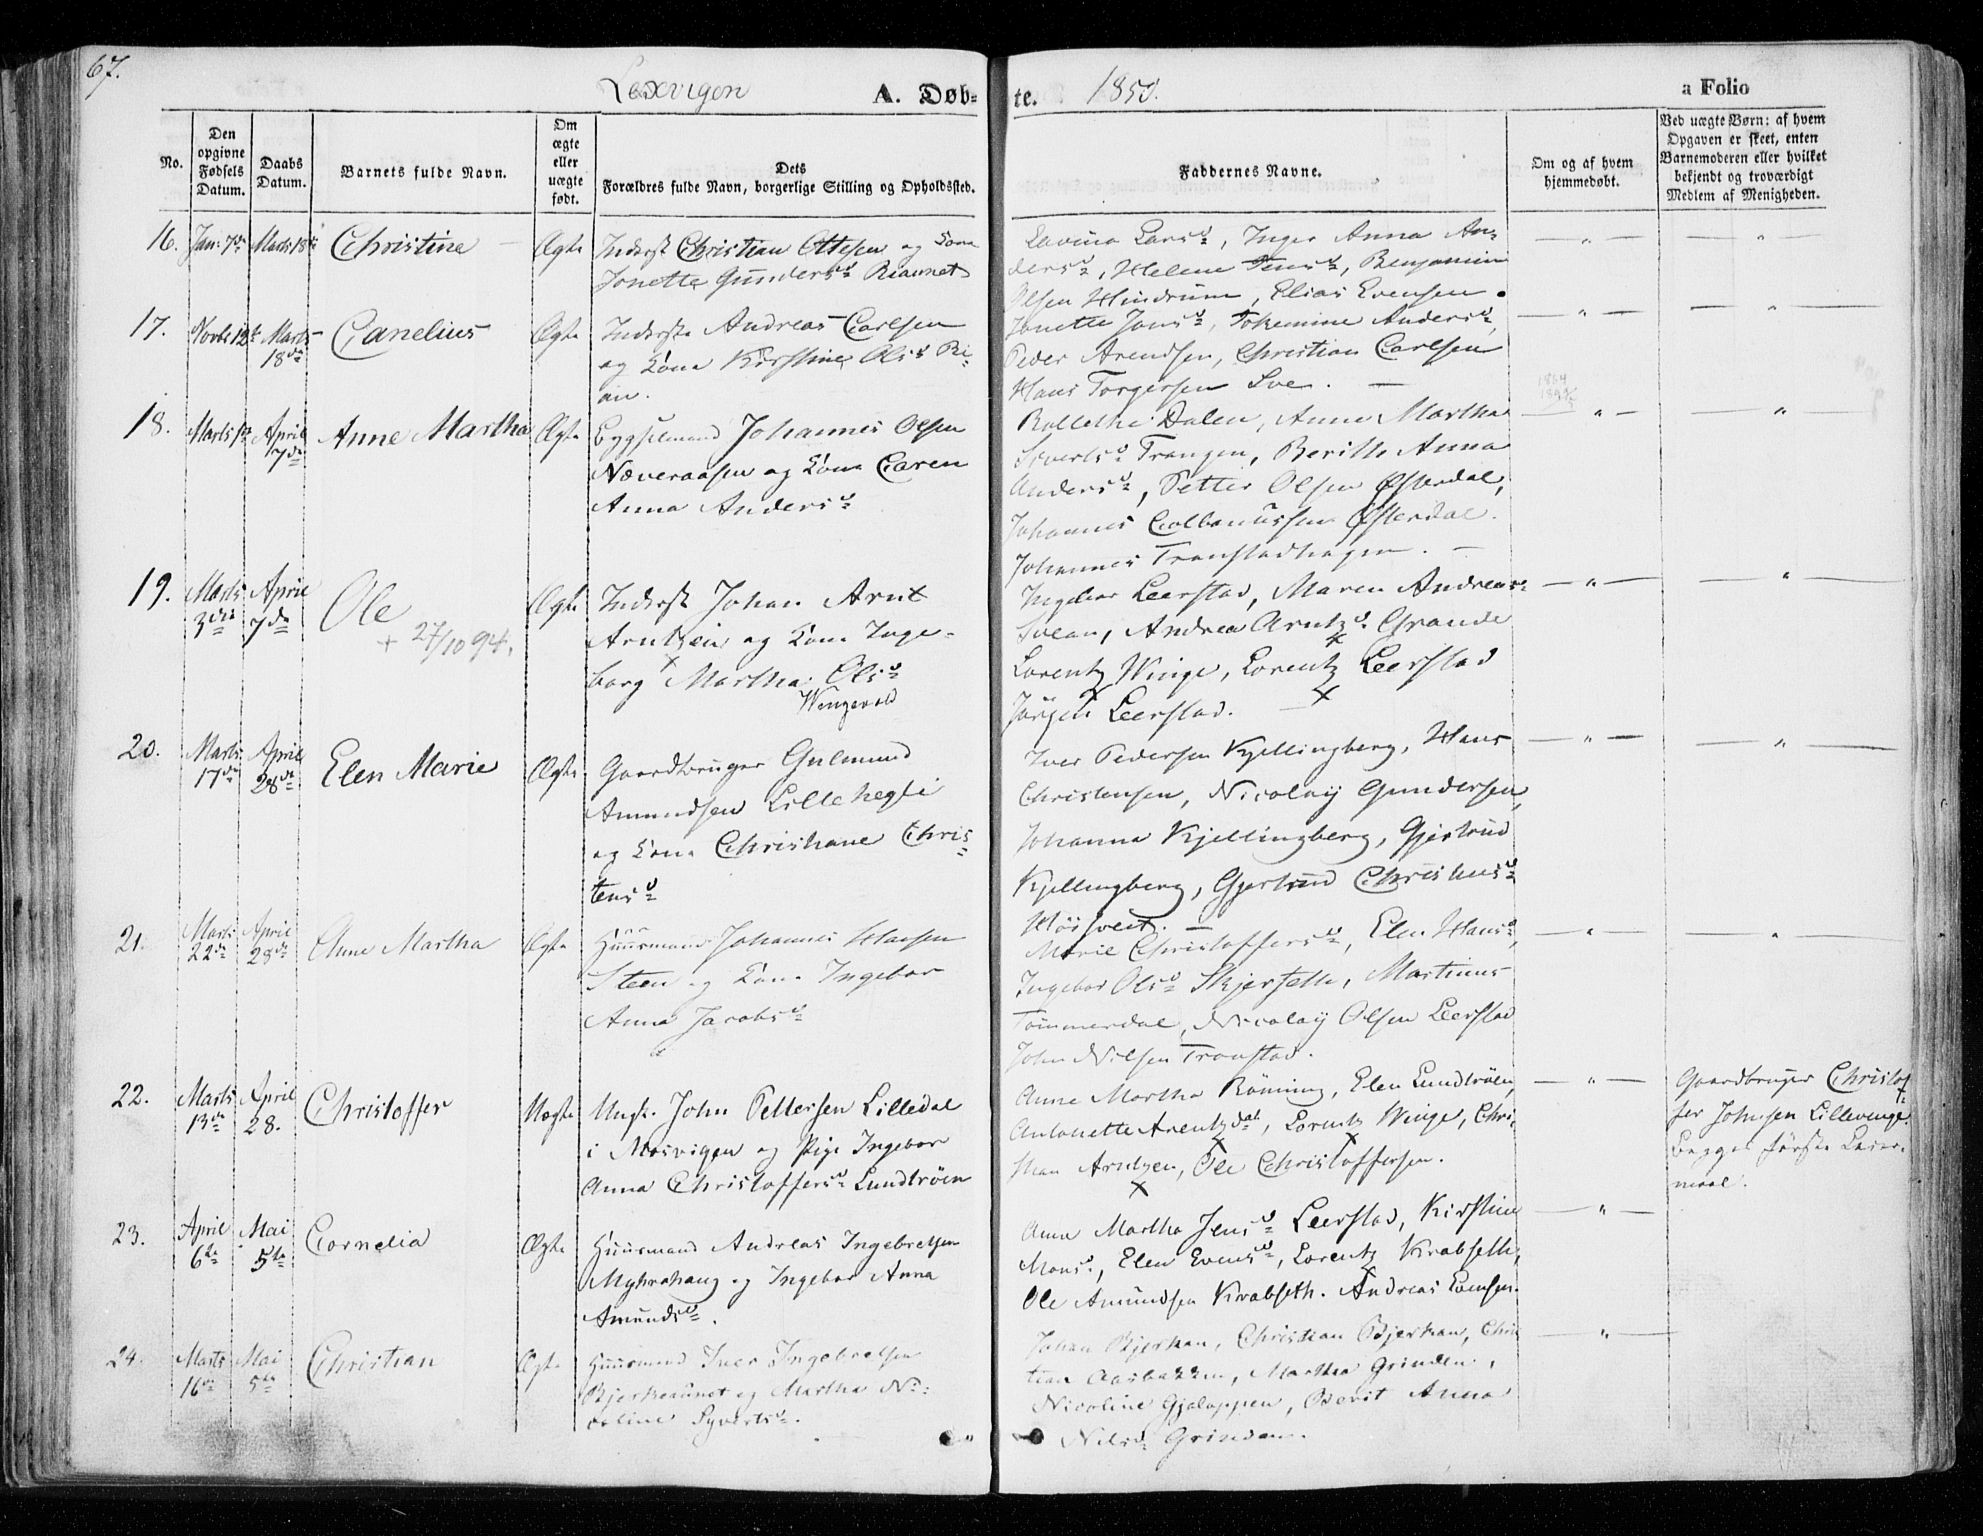 67.
Lexvigen A. Døb= te. 1850. a Folio
No.
Den opgivne Fødsels Datum.
Daabs Datum.
Barnets fulde Navn.
Om ægte eller uægte født.
Dets Forældres fulde Navn, borgerlige Stilling og Opholdssted.
Faddernes Navne.
Om og af hvem hjemmedøbt.
Ved uægte Børn: af hvem Opgaven er skeet, enten Barnemoderen eller hvilket bekjendt og troværdigt Medlem af Menigheden.
16. Jan: 7de Marts 18de Christine Ægte
Inderst Christian Ottesen og Kone
Jonette Gundersd. Riaunet
Lavina Larsd., Inger Anna An=
dersd., Helene Jensd., Benjamin
Olsen Hindrum, Elias Evensen.
17. Novbr 12te Marts 18de Canelius Ægte
Inderste Andreas Carlsen
og Kone Kirstine Olsd. Ri=
an.
Jonette Jonsd., Andersd.,
Peder Arendsen, Christian Carlsen
Hans Torgersen Sve.
1864
18. Marts 1ste April 7de Anne Martha Ægte
Bygselmand Johannes Olsen
Næveraasen og Kone Caren
Anna Andersd.
Dalen, Anne Martha
Siverts d. Trangen, Berith Anna
Andersd., Petter Olsen Østerdal,
Johannes Colbanussen Østerdal.
Johannes Tronstadhagen.
19. Marts 3die April 7de Ole Ægte
+ 27/10 94.
Inderst Johan Arnt
Arntzen og Kone Inge=
borg Martha Olsd.
Wingevold
Ingebor Leerstad, Maren Andreasd.
Svean, Andrea Arntzd. Grande
Lorentz Winge, Lorentz Leerstad
Jørgen Leerstad.
20. Marts 17de April 28de Elen Marie Ægte
Gaardbruger Gulmund
Amundsen Lillehegli
og Kone Christiane Chris=
tensd.
Iver Pedersen Kjellingberg, Hans
Christensen, Nicolaij Gundersen,
Johanna Kjellingberg, Gjertrud
Kjellingberg, Gjertrud Christensd.
Høistveit.
21. Marts 22de April 28de Anne Martha Ægte
Huusmand Johannes Hansen
Steen og Kone Ingebor
Anna Jacobsd.
Marie Christoffersd., Elen Hansd.,
Ingebor Olsd. Skjersette, Martinus
Tømmerdal, Nicolaij Olsen Leerstad
John Nilsen Tronstad.
22. Marts 13de April 28. Christoffer Uægte
Ungk. John Pettersen Lilledal
i Mosvigen og Pige Ingebor
Anna Christoffersd. Lundtrøen
Anne Martha Rønning, Elen Lundtrøen,
Antonette Arentzdat., Lorentz Winge, Chri=
stian Arntzen, Ole Christoffersen.
Gaardbruger Christof=
fer Johnsen Lillevinge.
Begges første Leier=
maal.
23. April 6te Mai 5te Cornelia Ægte
Huusmand Andreas Ingebretsen
Myhrahaug og Ingebor Anna
Amundsd.
Anne Martha Jensd. Leerstad, Kirstine
Monsd., Elen Evensd., Lorentz Krabseth,
Ole Amundsen Krabseth. Andreas Evensen.
24. Marts 16de Mai 5te Christian Ægte
Huusmand Iver Ingebretsen
Bjerkeaunet og Martha Ni=
coline Syvertsd.
Johan Bjerkan, Christian Bjerkan, Chris
tian Aasbakken, Martha Grinden,
Nicoline Gjeloppen, Berit Anna
Nilsd. Grindan.